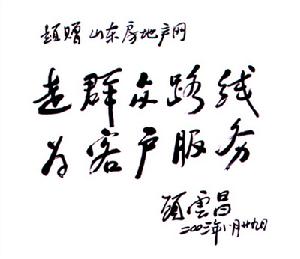 题赠山东房地产网
走群众路线
为客户服务
顾雲昌
二00三年八月廿九日